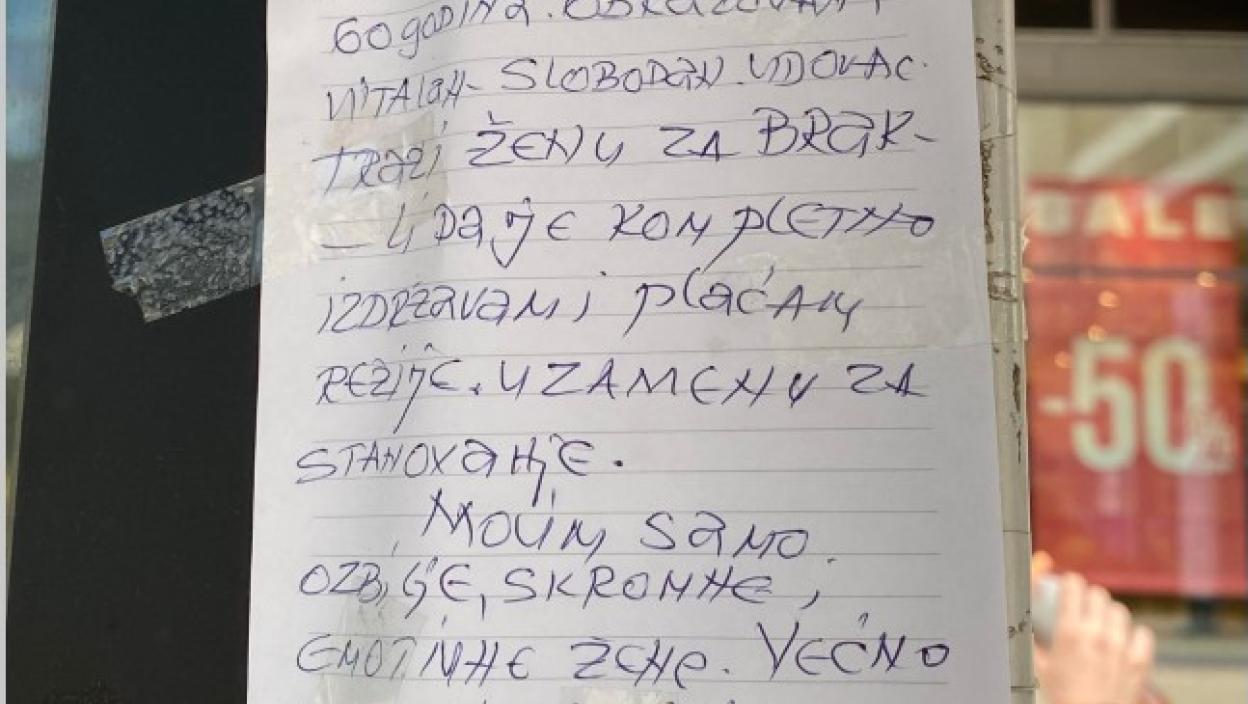 60 godina. OBRAZOVAN I
VITALAN - SLOBODAN. UDOVAC.
TRAŽI ŽENU ZA BRAK -
- UDAJE KOMPLETNO
IZDRŽAVAM I plaćAM
REŽIJE. U ZAMENU ZA
STANOVANJE.
MOLIM SAMO
OZBILJNE, SKROMNE,
EMOTIVNE ŽENE. VEĆNO
SALE
-50%